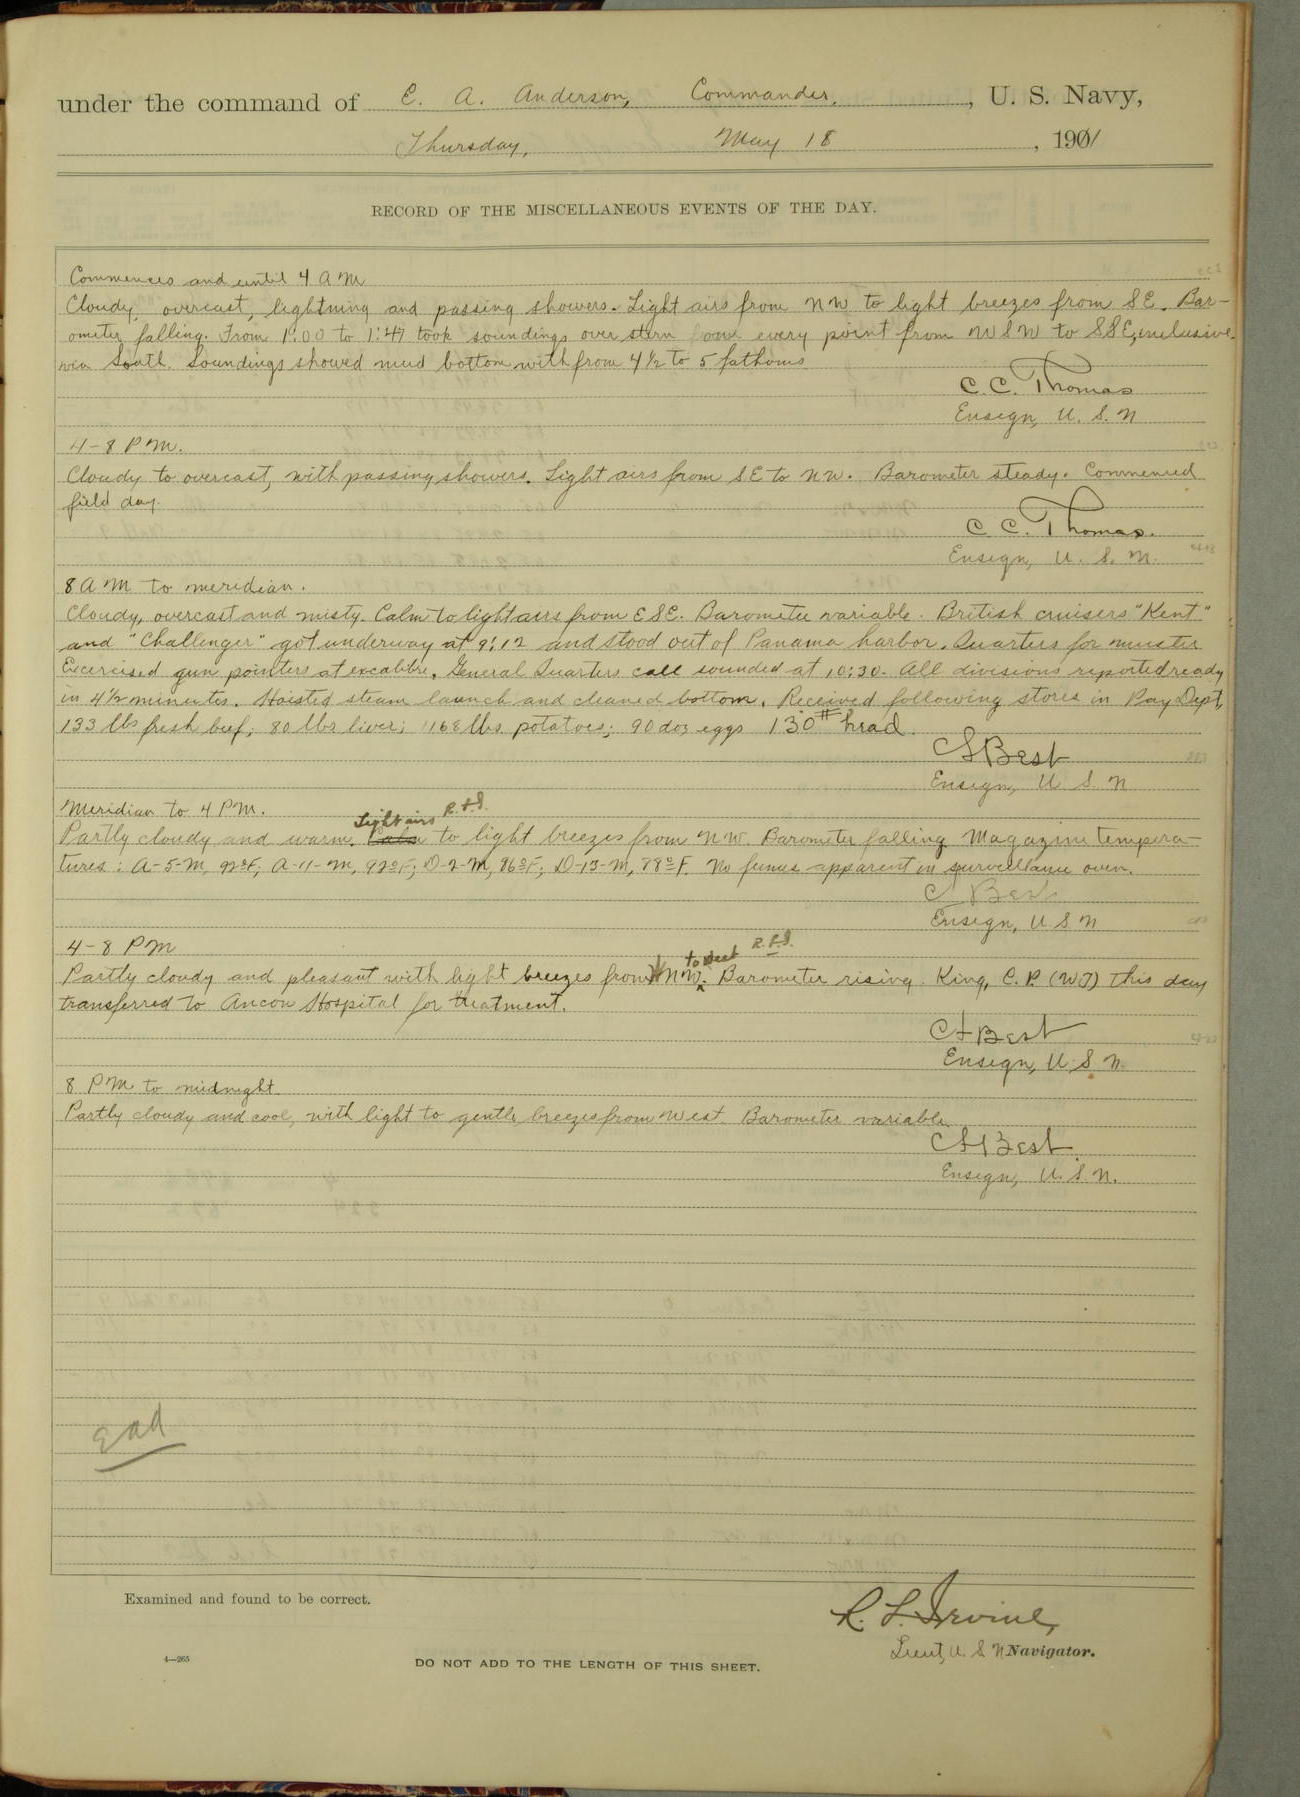 under the command of E. A. Anderson, Commander, , U. S. Navy,
Thursday, May 18 , 1901
RECORD OF THE MISCELLANEOUS EVENTS OF THE DAY.
Commences and until 4 A M
Cloudy, overcast, lightning and passing showers. Light airs from NW to light breezes from SE. Bar-
ometer falling. From 1:00 to 1:47 took soundings over stern from every point from WSW to SSE, inclusive
via South. Soundings showed mud bottom with from 4½ to 5 fathoms
C. C. Thomas
Ensign, U. S. N
4-8 P M.
Cloudy to overcast, with passing showers. Light airs from SE to NW. Barometer steady. Commenced
field day.
C. C. Thomas.
Ensign, U. S. N.
8 A M to meridian.
Cloudy, overcast and misty. Calm to light airs from ESE. Barometer variable. British cruisers "Kent"
and "Challenger" got underway at 9:12 and stood out of Panama harbor. Quarters for muster
Excercised gun pointers at excalibre. General Quarters call sounded at 10:30. All divisions reported ready
in 4½ minutes. Hoisted steam launch and cleaned bottom. Received following stores in Pay Dept,
133 lbs fresh beef; 80 lbs liver; 168 lbs. potatoes; 90 doz eggs 130# bread.
C S Best
Ensign, U. S. N
Meridian to 4 P M.
Light airs R.F.I.
Partly cloudy and warm. Calm to light breezes from NW. Barometer falling Magazine tempera-
tures: A-5-M, 92°F; A-11-M, 92°F; D-2-M, 86°F; D-13-M, 88°F. No fumes apparent in surveillance oven.
C S Best
Ensign, U S N
4-8 P M
to West R.F.I.
Partly cloudy and pleasant with light breezes from NW. Barometer rising. King, C. P. (WT) this day
transferred to Ancon Hospital for treatment.
C S Best
Ensign, U. S. N.
8 P M to midnight
Partly cloudy and cool, with light to gentle breezes from West. Barometer variable.
C S Best.
Ensign, U. S. N.
Ead
Examined and found to be correct.
R. F. Irvine,
Lieut, U S N Navigator.
4—265
DO NOT ADD TO THE LENGTH OF THIS SHEET.